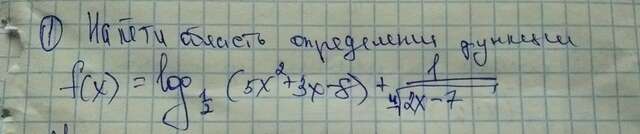 ① Найти область определения функции
f(x) = log_{1/2} (5x²+3x-8) + 1/∜(2x-7)